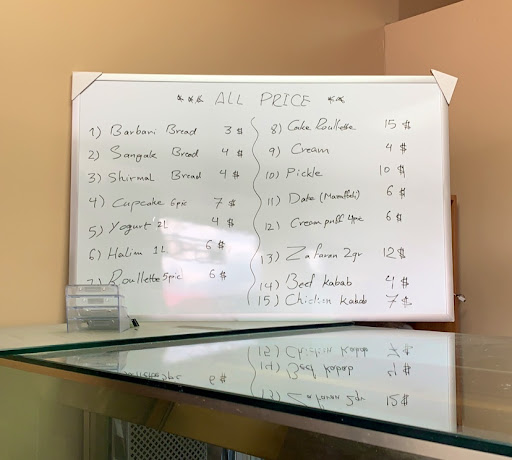 *** ALL PRICE ***
1) Barbari Bread 3 $
2) Sangak Bread 4 $
3) Shirmal Bread 4 $
4) Cupcake 6pic 7 $
5) Yogurt 2L 4 $
6) Halim 1L 6 $
7) Roullette 5pic 6 $
8) Cake Roullette 15 $
9) Cream 4 $
10) Pickle 10 $
11) Date (Mazafati) 6 $
12) Cream puff 6 $
13) Zafaran 2gr 12 $
14) Beef kabab 4 $
15) Chicken kabab 7 $